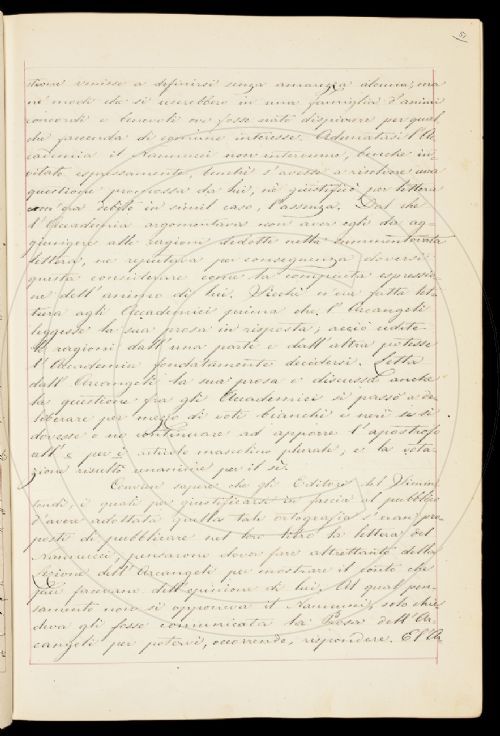 51
stione venisse a definirsi senza amarezza alcuna; ma
ne' modi che si userebbero in una famiglia d'amici
concordi e benevoli ove fosse nato dispiacere per qual
che faccenda di comune interesse. Adunatasi l'Ac
cademia il Nannucci non intervenne, benchè in-
vitato espressamente, benchè s'avesse a risolvere una
questione promossa da lui, nè giustificò per lettera
com'era debito in simil caso, l'assenza. Dal che
l'Accademia argomentava non aver egli da ag-
giungere alle ragioni dedotte nella summentovata
lettera, ne reputava per conseguenza doversi
questa considerare come la compiuta espressio-
ne dell'animo di lui. Sicchè n'era fatta let-
tura agli Accademici prima che l'Arcangeli
leggesse la sua prosa in risposta; acciò udite
le ragioni dall'una parte e dall'altra potesse
l'Accademia fondatamente decidersi. Letta
dall'Arcangeli la sua prosa e discussa anche
la questione fra gli Accademici si passò a de-
liberare per mezzo di voti bianchi e neri se si
dovesse o no continuare ad apporre l'apostrofo
all' e per i articolo mascolino plurale; e la vota-
zione resultò unanime per il sì.
Convien sapere che gli Editori del
i quali per giustificarsi in faccia al pubblico
d'avere adottata quella tale ortografia s'eran pro
posti di pubblicare nel loro libro la lettera del
Nannucci, pensarono dover fare altrettanto della
Lezione dell'Arcangeli per mostrare il conto che
pur facevano dell'opinione di lui. Al qual pen-
samento non si opponeva il Nannucci, solo chie
deva gli fosse comunicata la Prosa dell'Ar-
cangeli per potervi, occorrendo, rispondere. E l'Ac